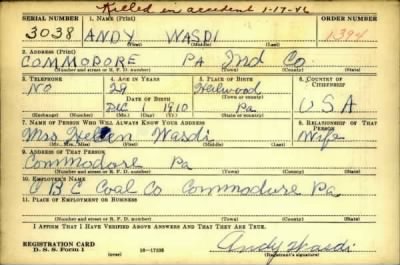 Killed in accident 1-17-46
SERIAL NUMBER 1. NAME (Print) ORDER NUMBER
3038 ANDY WASDI 1394
(First) (Middle) (Last)
2. ADDRESS (Print)
COMMODORE PA Ind Co.
(Number and street or R. F. D. number) (Town) (County) (State)
3. TELEPHONE 4. AGE IN YEARS 5. PLACE OF BIRTH 6. COUNTRY OF CITIZENSHIP
NO 29 Heilwood
DATE OF BIRTH (Town or county)
DEC 1 1910 Pa USA
(Mo.) (Day) (Yr.) (State or country)
7. NAME OF PERSON WHO WILL ALWAYS KNOW YOUR ADDRESS 8. RELATIONSHIP OF THAT PERSON
Mrs Helen Wasdi Wife
(Mr., Mrs., Miss) (First) (Middle) (Last)
9. ADDRESS OF THAT PERSON
Commodore Pa
(Number and street or R. F. D. number) (Town) (County) (State)
10. EMPLOYER'S NAME
C B C Coal Co Commodore Pa
11. PLACE OF EMPLOYMENT OR BUSINESS
(Number and street or R. F. D. number) (Town) (County) (State)
I AFFIRM THAT I HAVE VERIFIED ABOVE ANSWERS AND THAT THEY ARE TRUE.
REGISTRATION CARD
D. S. S. Form 1 (over) 16-17105 Andy Wasdi
(Registrant's signature)